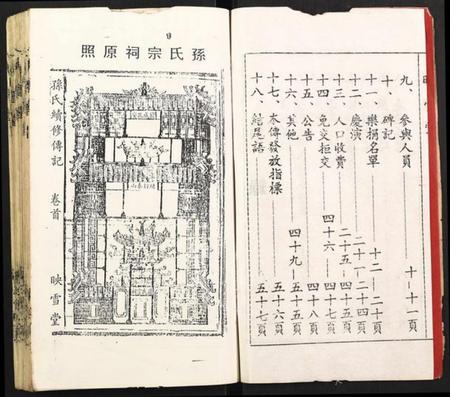 九、參與人員——十—十一頁
十、碑記
十一、樂捐名單——十二—二十頁
十二、慶演——二十一—二十四頁
十三、人口收費——二十五—四十五頁
十四、免交拒交——四十六—四十七頁
十五、公告——四十八頁
十六、其他——四十九—五十五頁
十七、本傳發放指標——五十六頁
十八、結尾語——五十七頁
孫氏宗祠原照
孫氏續修傳記 卷首 映雪堂